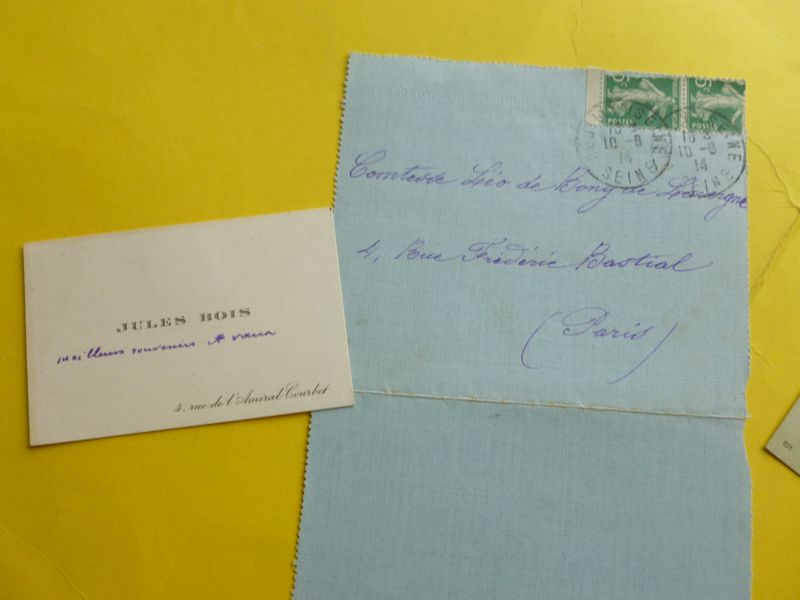 JULES BOIS
meilleurs souvenirs et vœux
4, rue de l'Amiral Courbet
5c 5c
POSTES POSTES
10 -8
14
SEINE
10 -8
14
SEINE
Comtesse Léo de Fony de Lavergne
4, Rue Frédéric Bastial
(Paris)